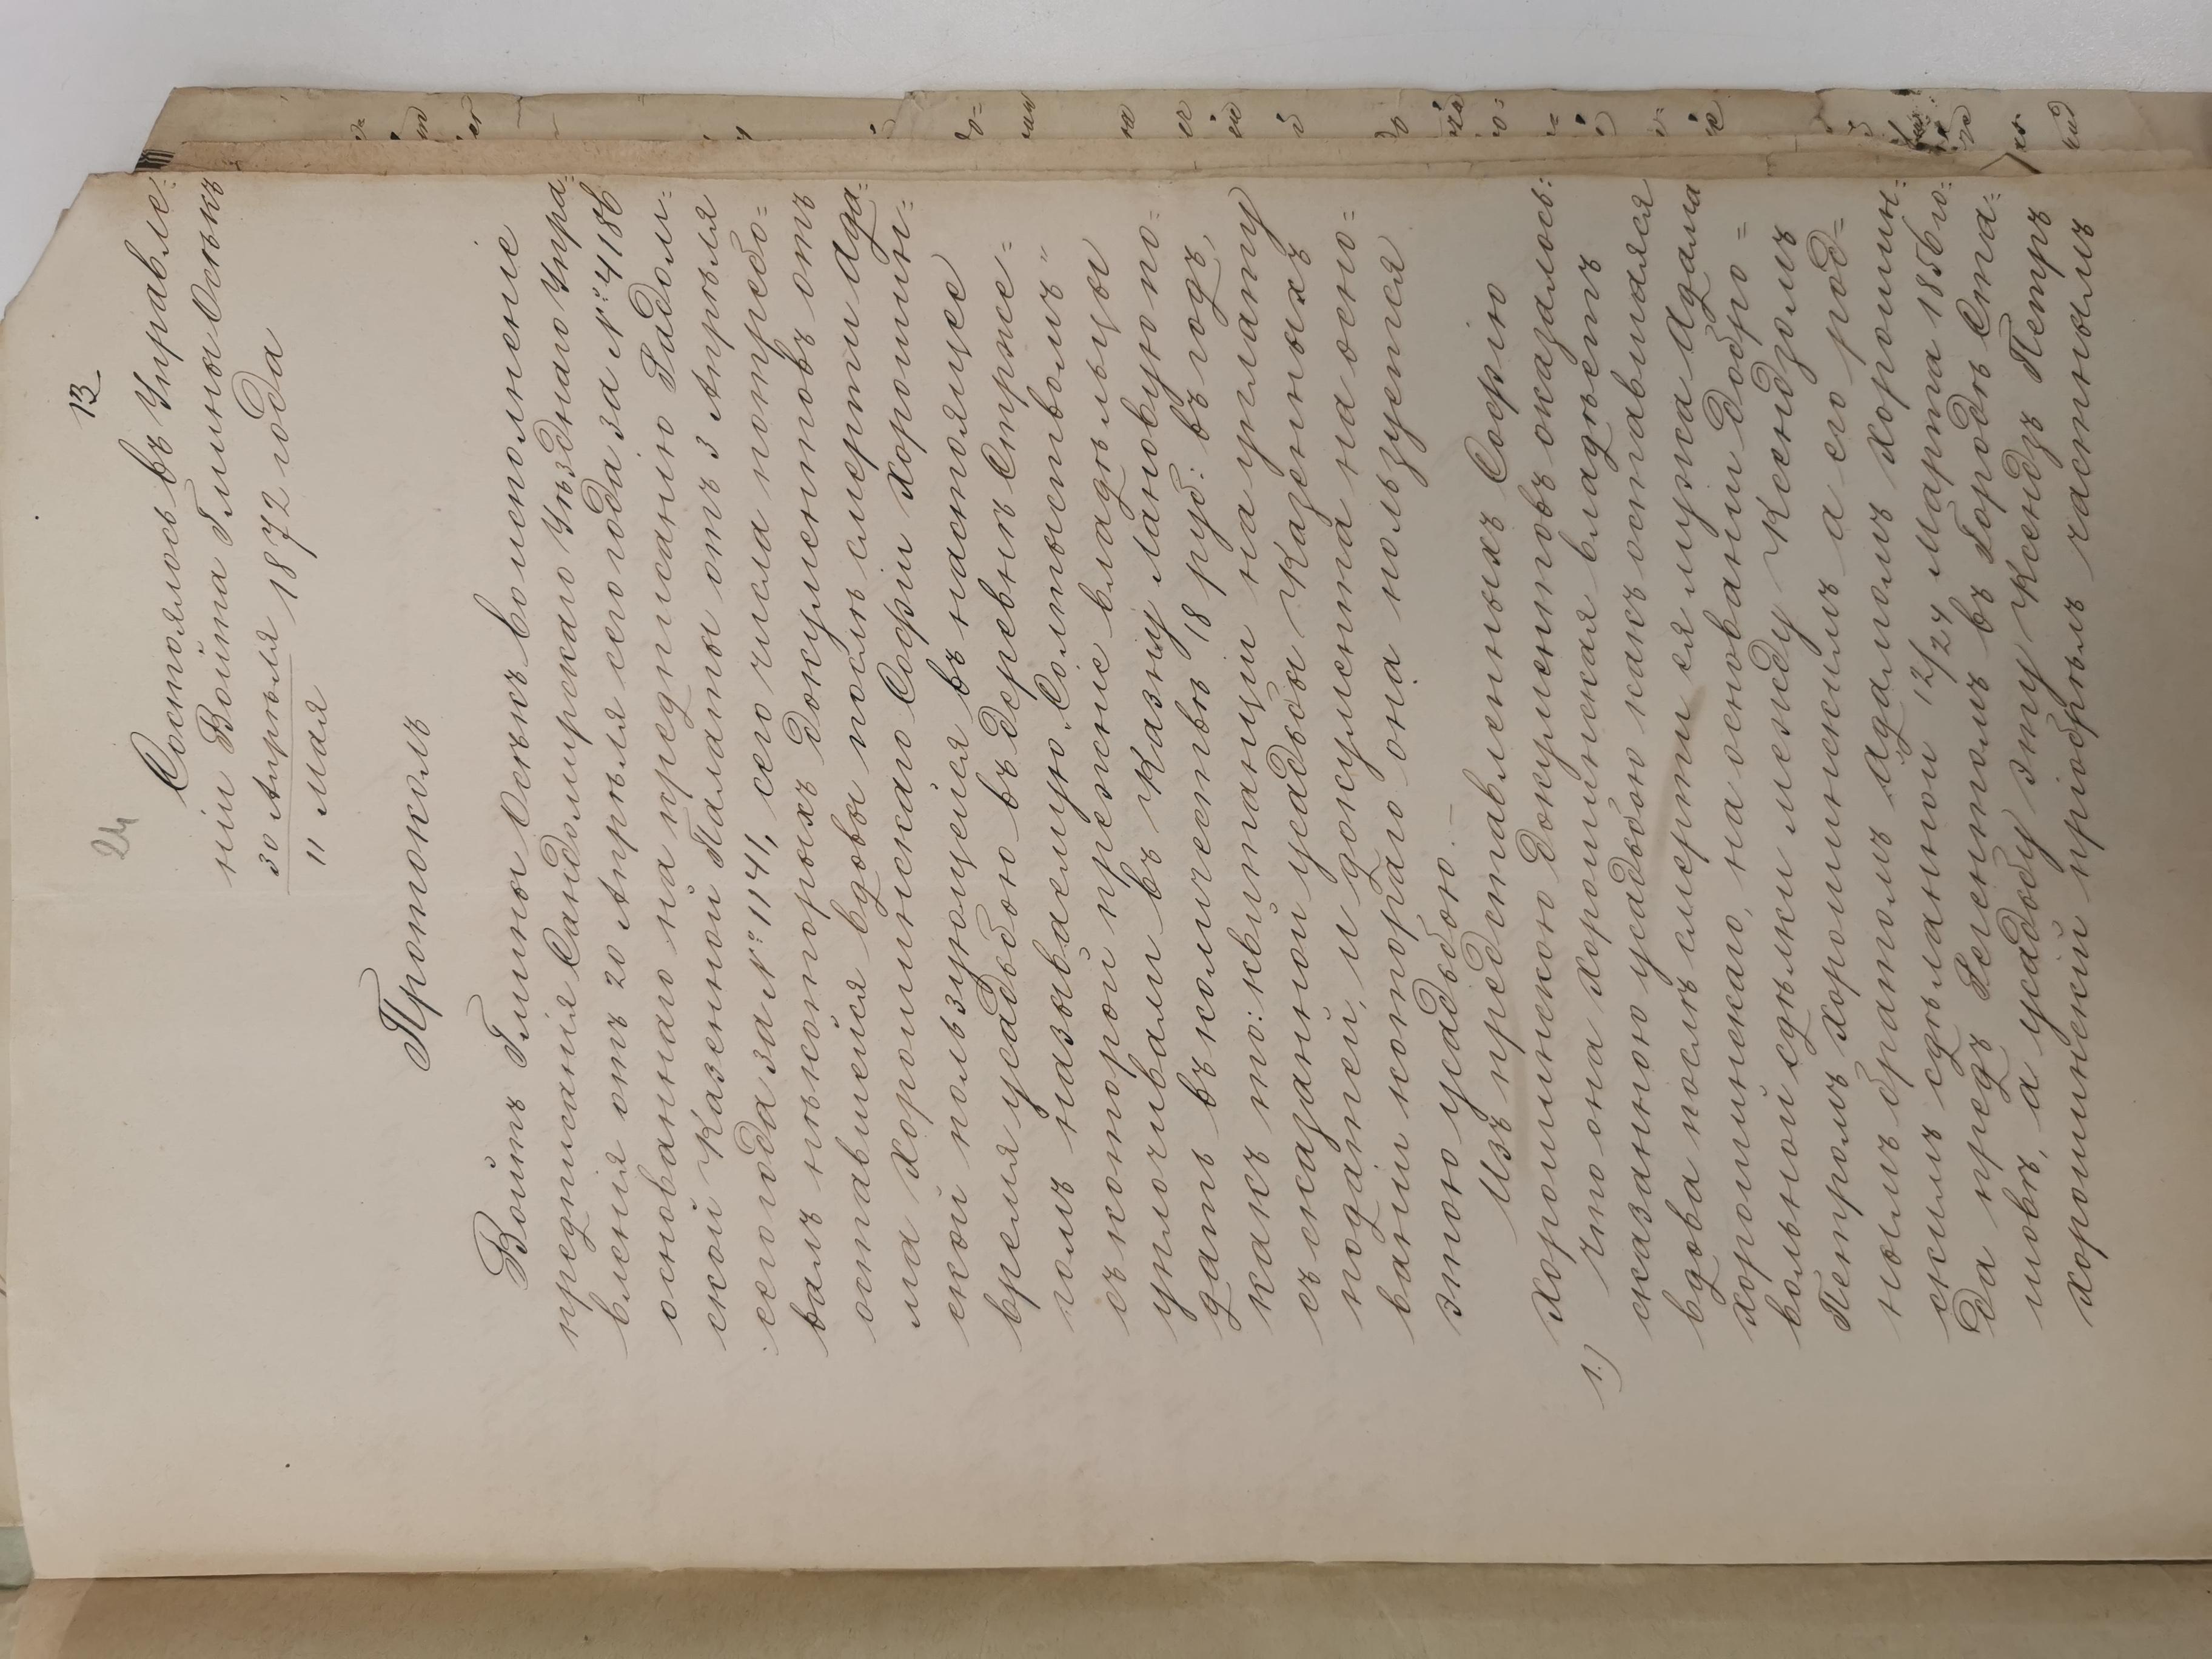 24
13
Состоялось въ Управле=
ніи Войта Гмины Осѣкъ
30 Апрѣля
11 Мая
1872 года
Протоколъ
Войтъ Гмины Осѣкъ воисполненіе
предписанія Сандомирскаго Уѣзднаго Упра=
вленія отъ 20 Апрѣля сего года за № 4186
основаннаго на предписанію Радом=
ской Казенной Палаты отъ 3 Апрѣля
сего года за № 1141, сего числа потребо=
валъ нѣкоторыхъ документовъ отъ
оставшейся вдовы послѣ смерти Ада=
ма Хорошинскаго Софіи Хорошин=
ской пользующейся въ настоящее
время усадьбою въ деревнѣ Стрже=
гомъ называемую „Солтыствомъ"
съ которой прежніе владѣльцы
уплочивали въ Казну Лановую по=
дать въ количествѣ 18 руб: въ годъ,
какъ то: квитанціи на уплату
съ сказанной усадьбы Казенныхъ
податей, и документа на осно=
ваніи котораго она пользуется
этою усадьбою. —
Изъ представленныхъ Софію
Хорошинскою документовъ оказалось:
1.) Что она Хорошинская владѣетъ
сказанною усадьбою какъ оставшаяся
вдова послѣ смерти ея мужа Адама
Хорошинскаго, на основаніи добро=
вольной сдѣлки между Ксендзомъ
Петромъ Хорошинскимъ а его род=
нымъ братомъ Адамомъ Хорошин=
скимъ сдѣланной 12/24 Марта 1856 го=
да предъ Регентомъ въ Городѣ Ста=
шовѣ, а усадьбу эту Ксендзъ Петръ
Хорошинскій пріобрѣлъ частнымъ